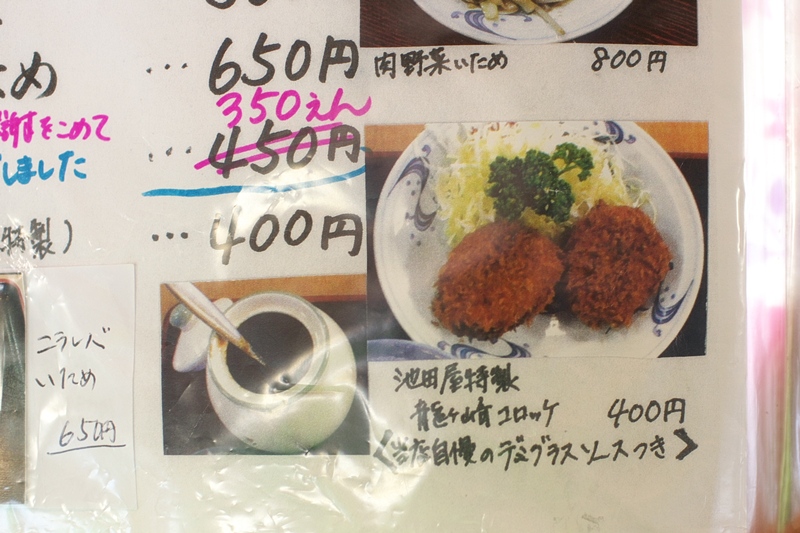 650円
肉野菜いため 800円
350えん
をこめて
450円
しました
特製) … 400円
ニラレバ
いため
650円
池田屋特製
龍ヶ崎コロッケ 400円
<当店自慢のデミグラスソースつき>